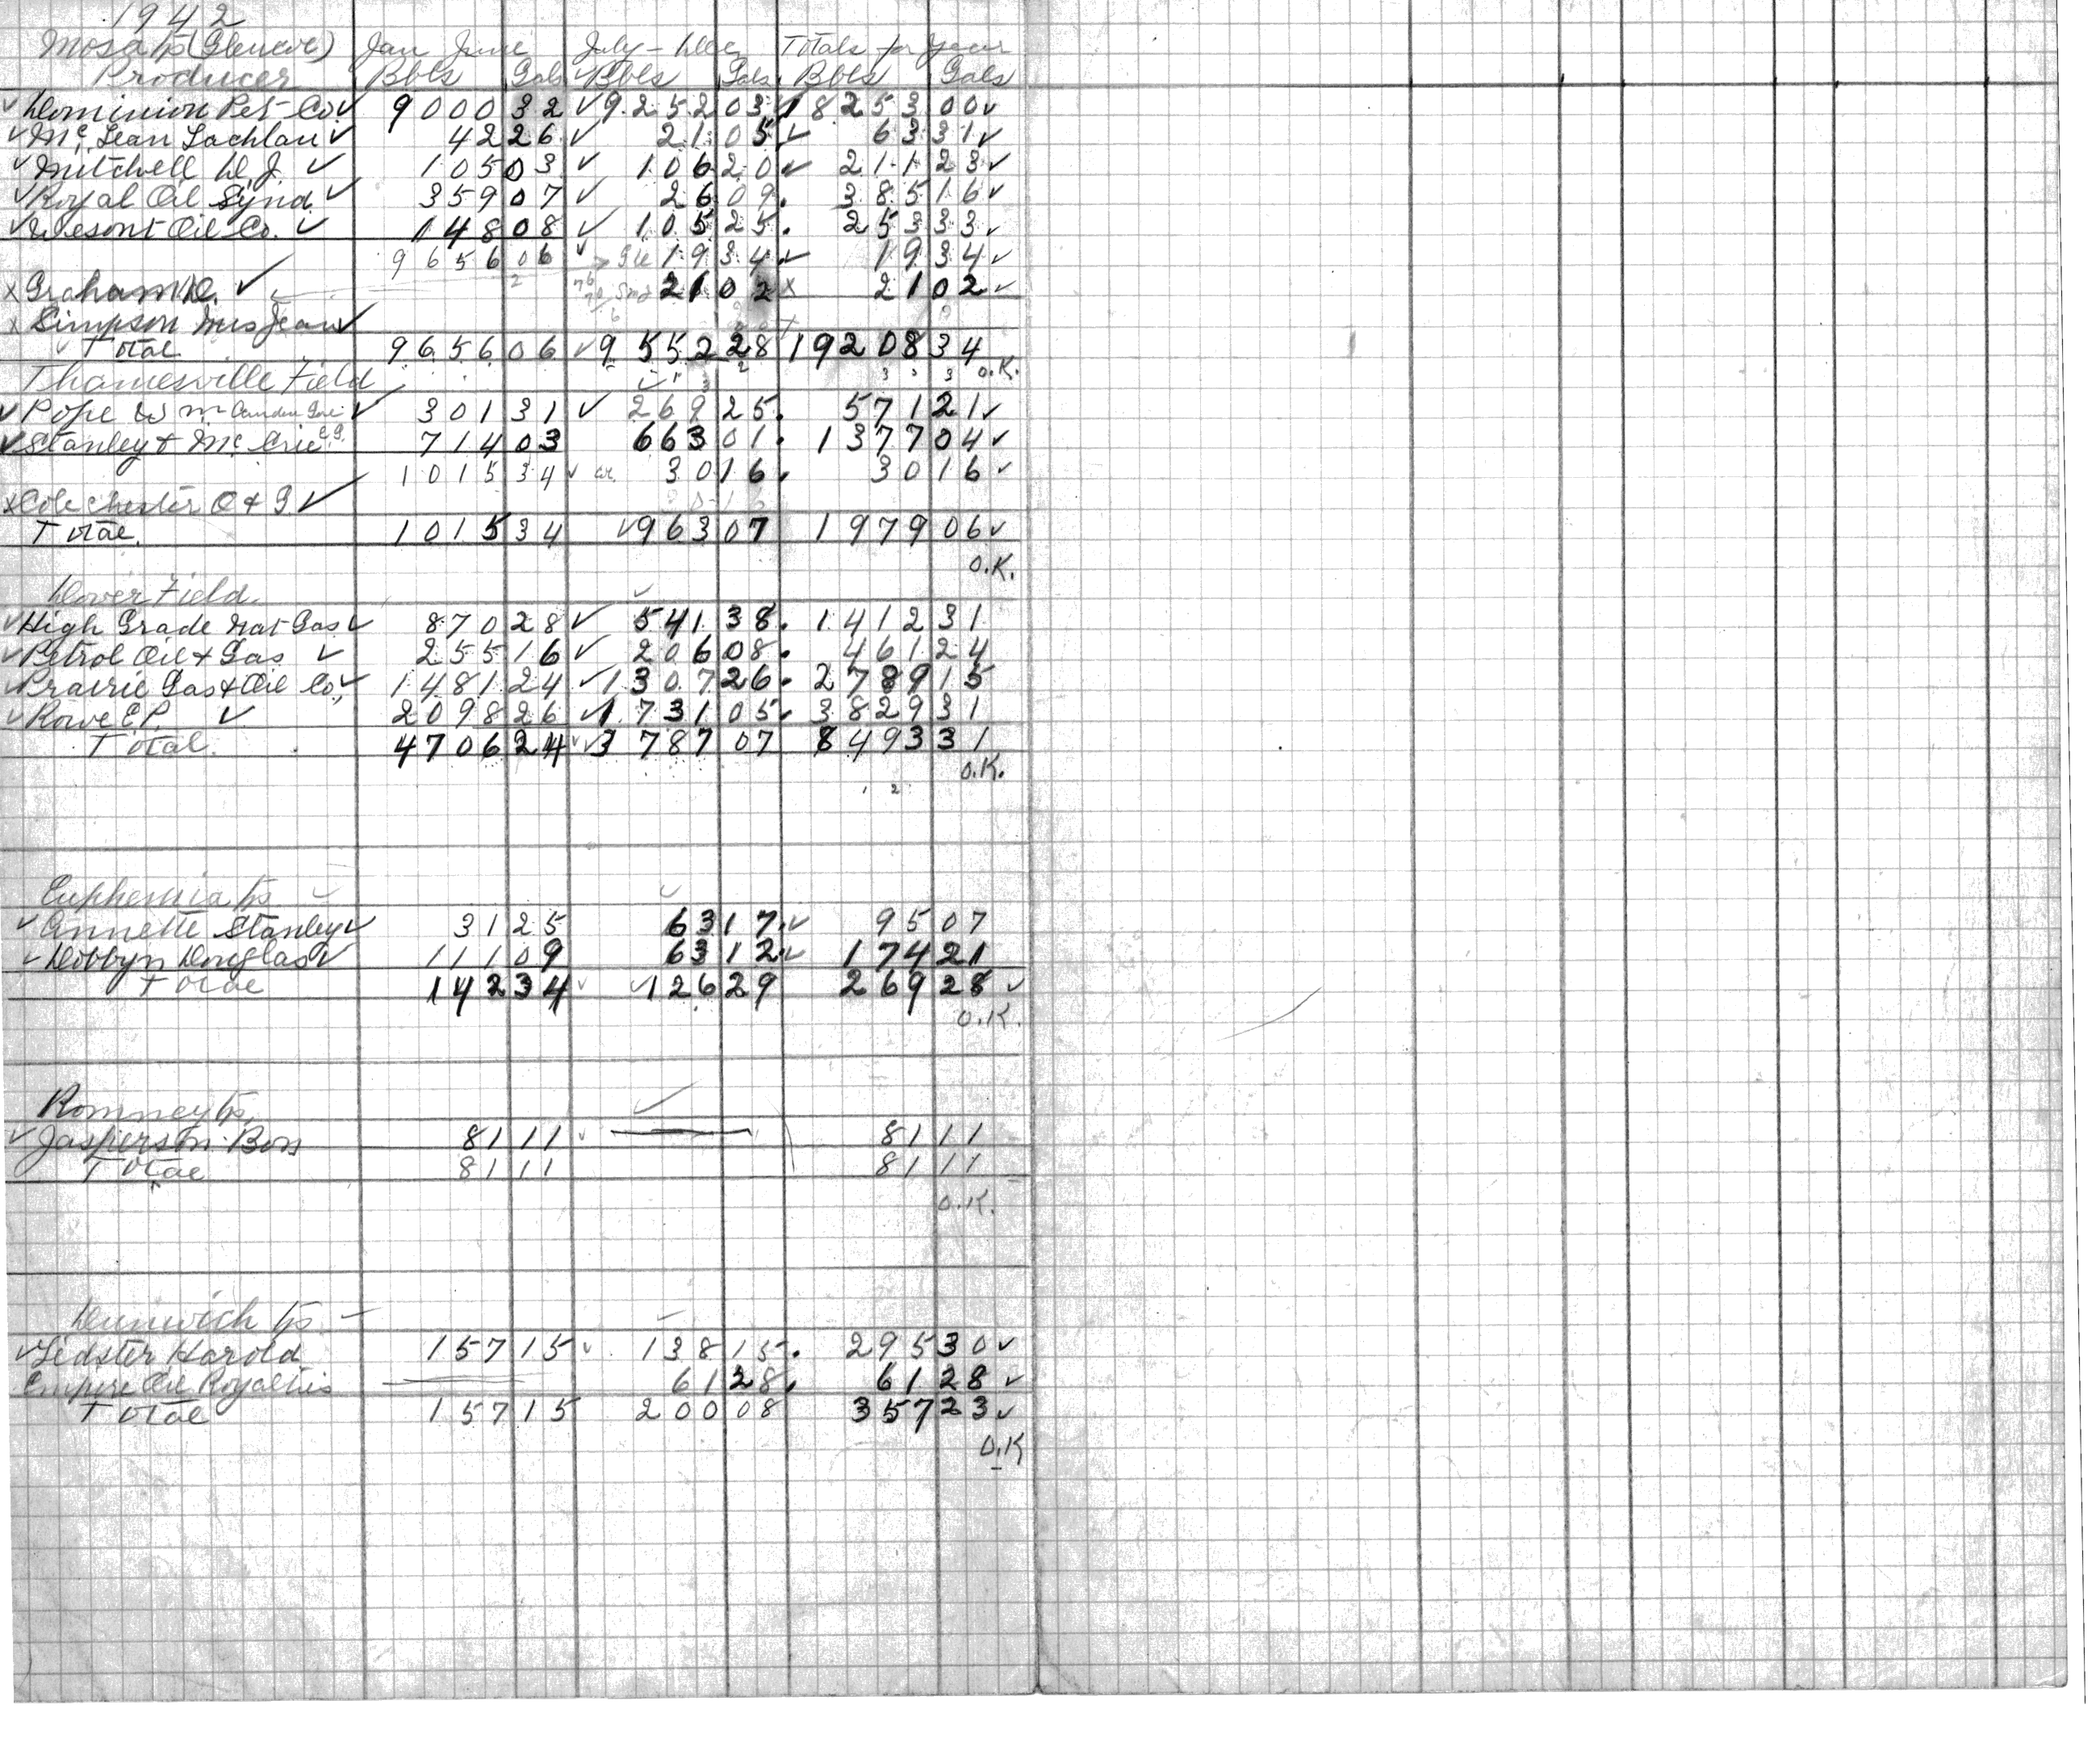 1942
Mosa Tp (Glencoe) Jan June July - Dec Totals for year
Producer Bbls Gals Bbls Gals Bbls Gals
✓ Dominion Pet Co. ✓ 9000 32 ✓ 9252 03 18253 00 ✓
✓ Mc Lean Lachlan ✓ 42 26 ✓ 21 05 ✓ 63 31 ✓
✓ Mitchell D. J. ✓ 105 03 ✓ 106 20 ✓ 211 23 ✓
✓ Royal Oil Synd. ✓ 359 07 ✓ 26 09. 385 16 ✓
✓ Wesont Oil Co. ✓ 148 08 ✓ 105 25. 253 33 ✓
9656 06 ✓ 19 34 ✓ 19 34 ✓
x Graham D. ✓ 21 02 x 21 02 ✓
x Simpson Mrs Jean ✓
Total 9656 06 ✓ 9552 28 19208 34
O.K.
Thamesville Field
✓ Pope W m Camden Gore ✓ 301 31 ✓ 269 25. 571 21 ✓
✓ Stanley & McCrie 714 03 663 01. 1377 04 ✓
1015 34 ✓ 30 16. 30 16 ✓
x Colchester O & G ✓
Total. 1015 34 ✓ 963 07 1979 06 ✓
O.K.
Dover Field.
✓ High Grade Nat Gas ✓ 870 28 ✓ 541 38. 1412 31
✓ Petrol Oil & Gas ✓ 255 16 ✓ 206 08. 461 24
✓ Prairie Gas & Oil Co., ✓ 1481 24 ✓ 1307 26. 2789 15
✓ Rowe E P ✓ 2098 26 ✓ 1731 05. 3829 31
Total. 4706 24 ✓ ✓ 3787 07 8493 31
O.K.
Euphemia Tp
✓ Annette Stanley ✓ 31 25 63 17. ✓ 95 07
✓ Dobbyn Douglas ✓ 111 09 63 12. ✓ 174 21
Total 142 34 ✓ ✓ 126 29 269 28 ✓
O.K.
Romney Tp.
✓ Jasperson Bon 81 11 ✓ — 81 11
Total 81 11 81 11
O.K.
Dunwich Tp
✓ Lidster Harold 157 15 ✓ 138 15. 295 30 ✓
Empire Oil Royalties — 61 28. 61 28 ✓
Total 157 15 200 08 357 23 ✓
O.K